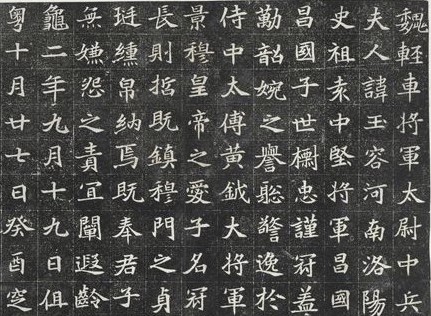 魏輕車將軍太尉中兵
夫人諱玉容河南洛陽
史祖袁中堅將軍昌國
昌國子世檦忠謹冠蓋
勤韶婉之譽聡警逸於
侍中太傅黃鉞大將軍
景穆皇帝之愛子名冠
長則哲既鎮穆門之貞
珽纁帛納焉既奉君子
無嫌怨之責宜闡遐齡
龜二年九月十九日俎
粵十月廿七日癸酉窆